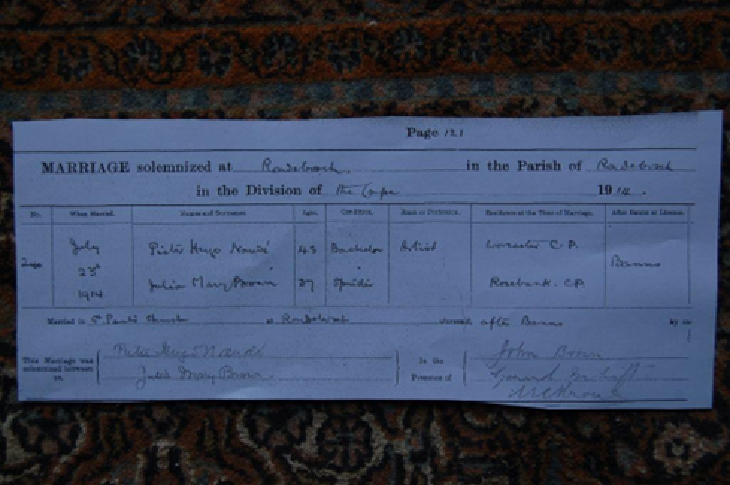 Page 121
MARRIAGE solemnized at Rondebosch in the Parish of Rondebosch
in the Division of the Cape 1914.
No. When Married. Names and Surnames. Ages. Condition. Rank or Profession. Residence at the Time of Marriage. After Banns or Licence.
July Pieter Hugo Naudé 43 Bachelor Artist Worcester C.P.
23d Banns
1914 Julia Mary Brown 37 Spinster Rosebank. C.P.
Married in St Paul's Church at Rondebosch after Banns by me
This Marriage was solemnized between us, Pieter Hugo Naudé In the Presence of John Brown
Julia Mary Brown